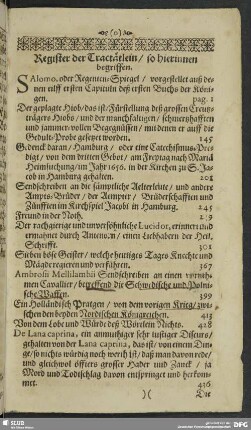 Register der Tractätlein / so hierinnen
begriffen.
Salomo, oder Regenten-Spiegel / vorgestellet auß de-
nen eilff ersten Capituln deß ersten Buchs der Köni-
gen. pag. 1
Der geplagte Hiob / das ist / Fürstellung deß grossen Creutz-
trägers Hiobs / und der manchfaltigen / schmertzhafften
und jammer-vollen Begegnüssen / mit denen er auff die
Gedult-Probe gesetzet worden. 145
Gedenck daran / Hamburg / oder eine Catechismus-Pre-
digt / von dem dritten Gebot / am Freytag nach Mariä
Heimsuchung / im Jahr 1656. in der Kirchen zu S. Ja-
cob in Hamburg gehalten. 201
Sendschreiben an die sämptliche Aelterleute / und andere
Ampts-Brüder / der Aempter / Brüderschafften und
Zünfften im Kirchspiel Jacobi in Hamburg. 245
Freund in der Noth. 219
Der rachgierige und unversöhnliche Lucidor, erinnert und
ermahnet durch einen Liebhabern der Heil.
Schrifft. 301
Sieben böse Geister / welche heutiges Tages Knechte und
Mägde regieren und verführen. 367
Ambrosii Mellilambii Sendschreiben an einen vorneh-
men Cavallier / betreffend die Schwedische und Polni-
sche Waffen. 399
Ein Holländisch Pratgen / von dem vorigen Krieg / zwi-
schen den beyden Nordischen Königreichen. 415
Von dem Lobe und Würde deß Wörtlein Nichts. 418
De Lana caprina, ein anmuhtiger sehr lustiger Discurs /
gehalten von der Lana caprina, das ist / von einem Din-
ge / so nichts würdig noch werth ist / daß man davon rede /
und gleichwol öffters grosser Hader und Zanck / ja
Mord und Todtschlag davon entspringet und herkom-
met. 426
)( Die